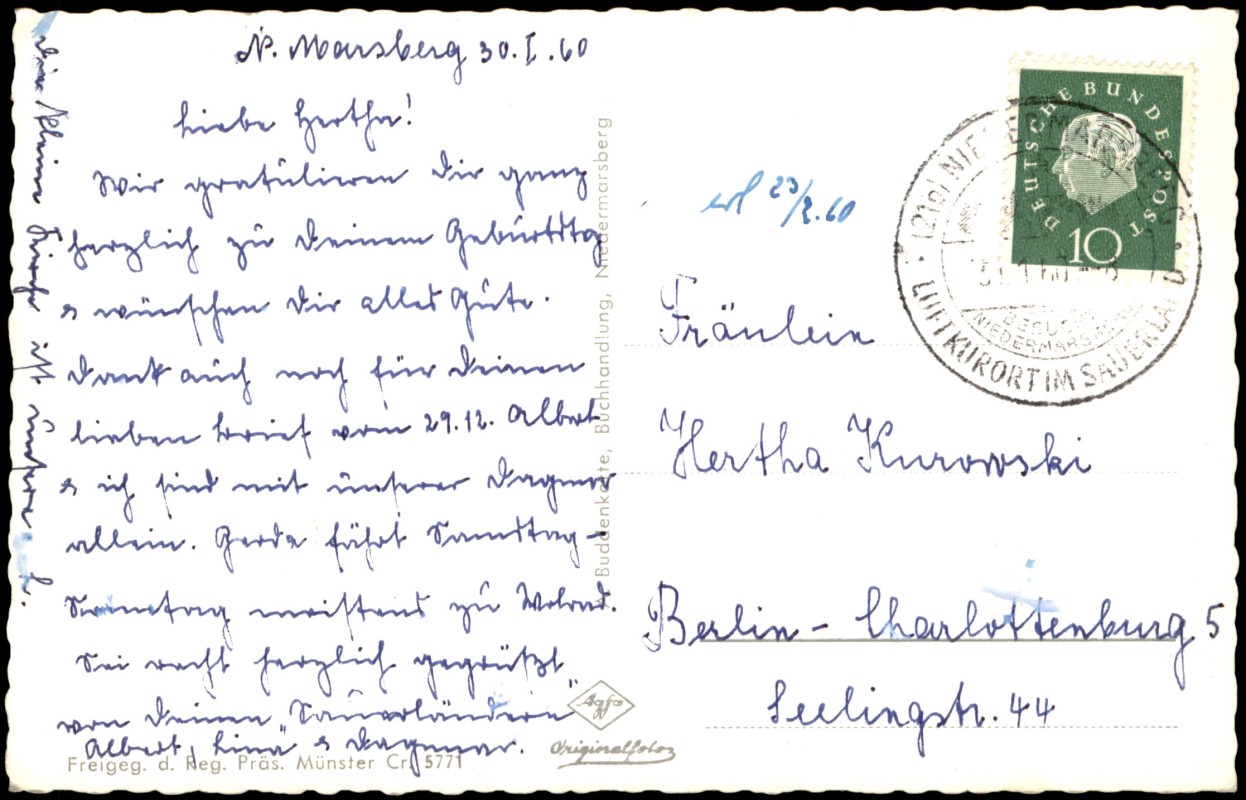 N. Marsberg 30.I.60
Liebe Hertha!
Wir gratulieren Dir ganz
herzlich zu Deinem Geburtstag
& wünschen Dir alles Gute.
Dank auch noch für Deinen
lieben Brief vom 29.12. Albert
& ich sind mit unserer Dagmar
allein. Gerda fährt Samstag-
Sonntag meistens zu
Sei recht herzlich gegrüßt
von Deinen „Sauerländern"
Albert, Lina & Dagmar.
Die kleine Kirche ist unsere
Freigeg. d. Reg. Präs. Münster Cr. 5771
Buddenkotte, Buchhandlung, Niedermarsberg
Agfa
Originalfoto
erl 23/2.60
DEUTSCHE BUNDESPOST
10
(21b) NIEDERMARSBERG
LUFTKURORT IM SAUERLAND
BESUCHT
NIEDERMARSBERG
Fräulein
Hertha Kurowski
Berlin - Charlottenburg 5
Seelingstr. 44